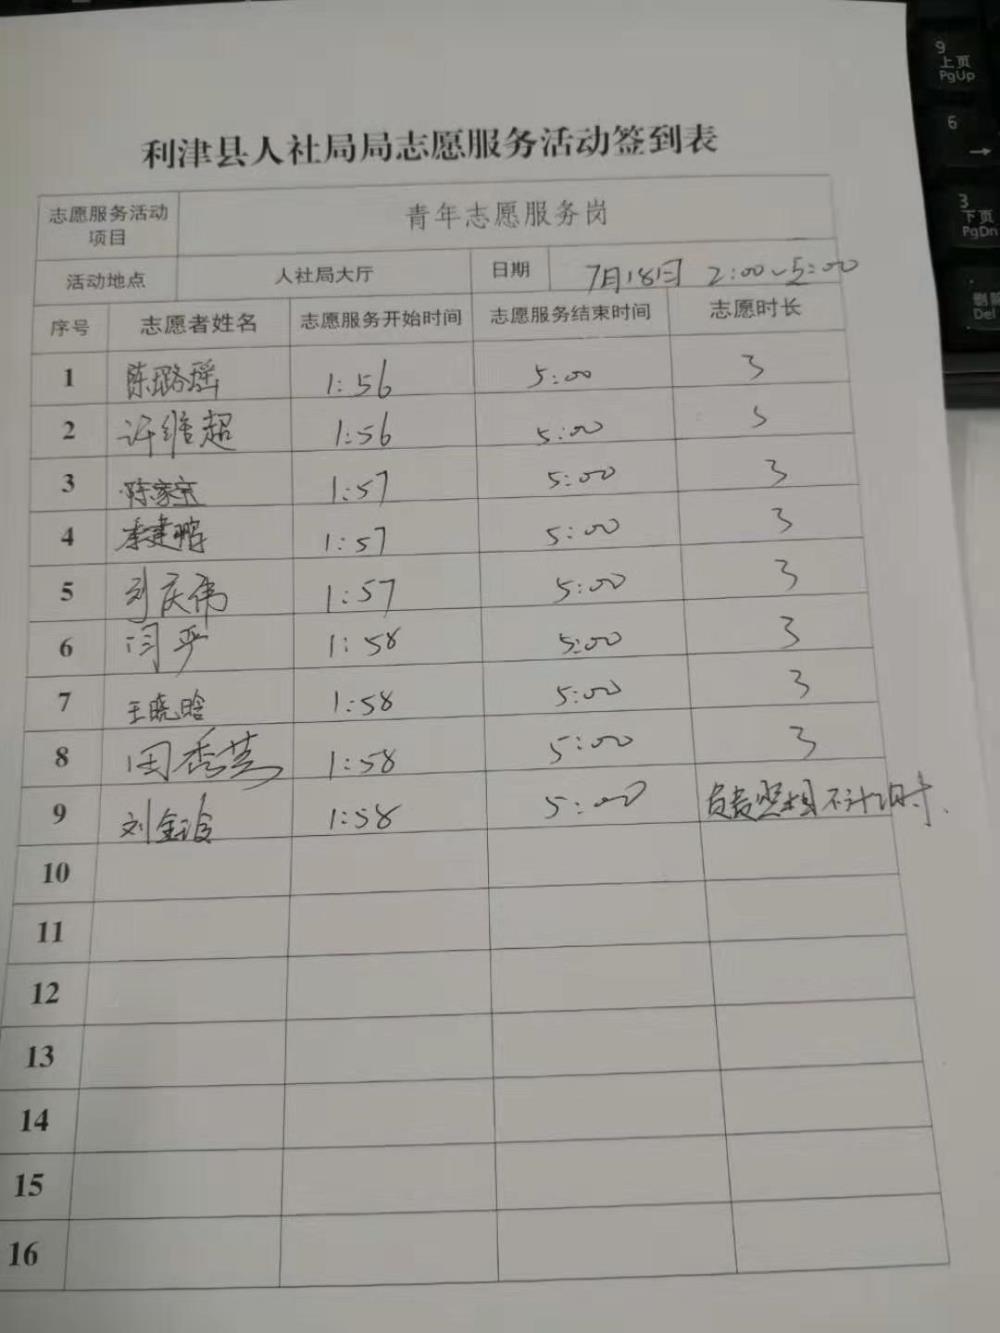 利津县人社局局志愿服务活动签到表
志愿服务活动项目 青年志愿服务岗
活动地点 人社局大厅 日期 7月18日 2:00~5:00
序号 志愿者姓名 志愿服务开始时间 志愿服务结束时间 志愿时长
1 陈璐瑶 1:56 5:00 3
2 许维超 1:56 5:00 3
3 陈家宝 1:57 5:00 3
4 李建鹏 1:57 5:00 3
5 刘庆伟 1:57 5:00 3
6 闫严 1:58 5:00 3
7 王晓晗 1:58 5:00 3
8 田秀芸 1:58 5:00 3
9 刘金 1:58 5:00 负责照相不计时
10
11
12
13
14
15
16
9
上页
PgUp
6
→
3
下页
PgDn
Del